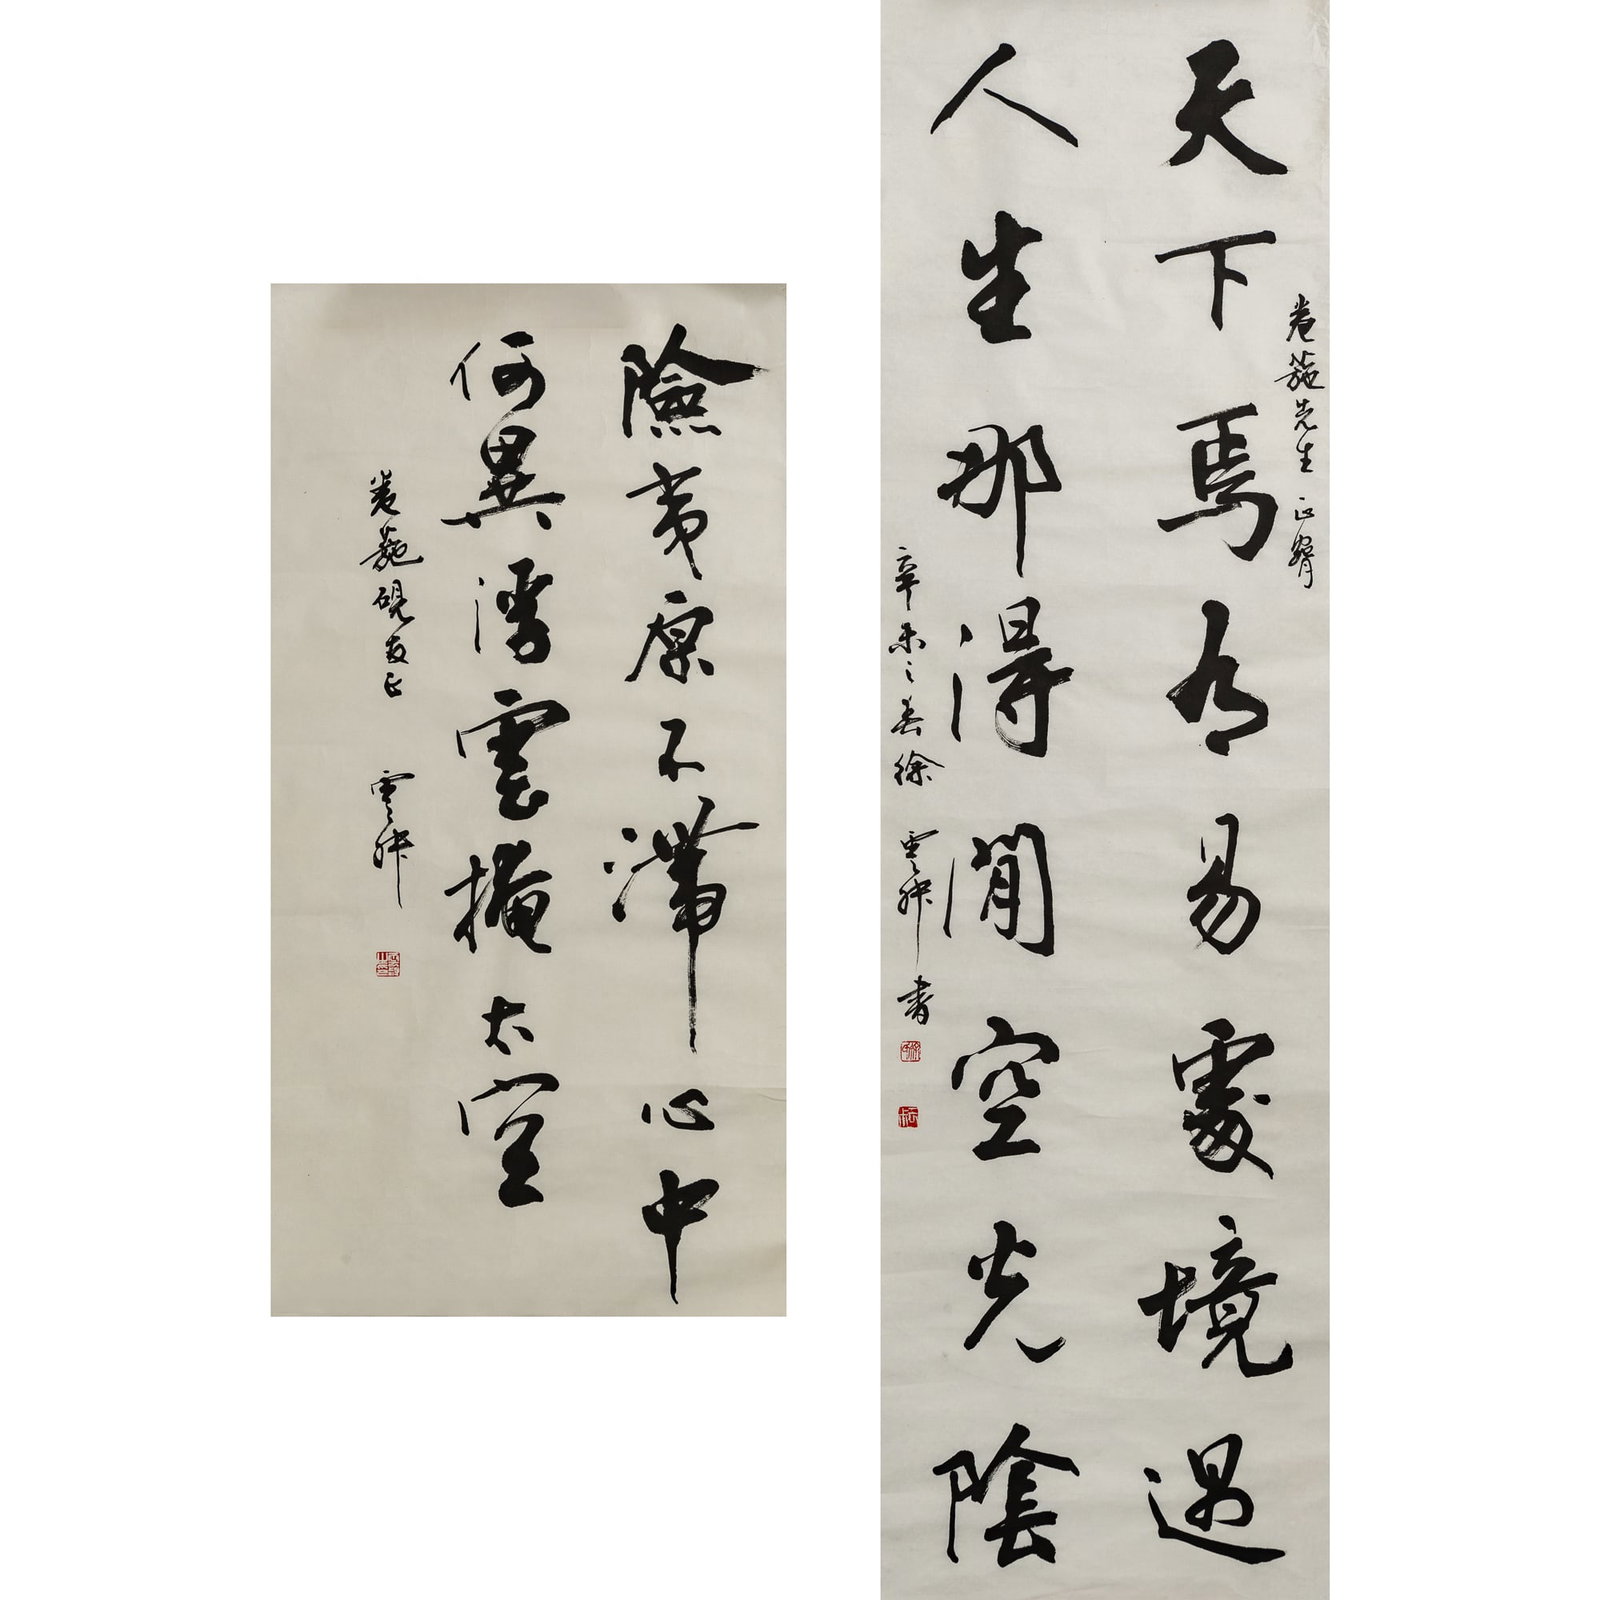 卷葹先生 正
天下焉有易處境遇
人生那得閒空光陰
辛未之春徐雲叔書
險夷原不滯心中
何異浮雲掩太空
卷葹硯友正 雲叔